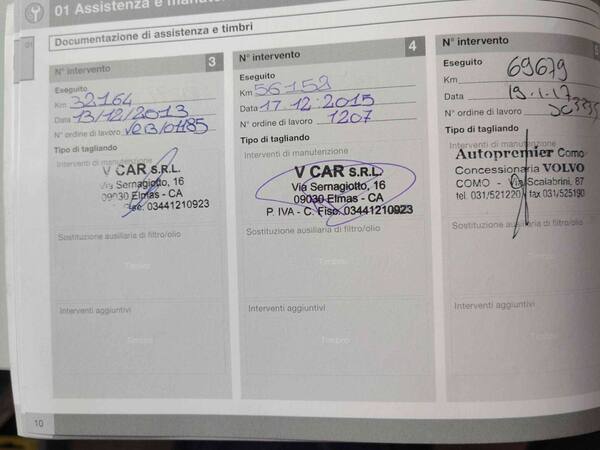 01 Assistenza e manuten
01
Documentazione di assistenza e timbri
N° intervento 3
Eseguito
Km 32164
Data 13/12/2013
N° ordine di lavoro
Tipo di tagliando
Interventi di manutenzione
V CAR S.R.L.
Via Sernagiotto, 16
09030 Elmas - CA
03441210923
Sostituzione ausiliaria di filtro/olio
Timbro
Interventi aggiuntivi
Timbro
N° intervento 4
Eseguito
Km 56158
Data 17.12.2015
N° ordine di lavoro 1207
Tipo di tagliando
Interventi di manutenzione
V CAR S.R.L.
Via Sernagiotto, 16
09030 Elmas - CA
P. IVA - C. Fisc. 03441210923
Sostituzione ausiliaria di filtro/olio
Timbro
Interventi aggiuntivi
Timbro
N° intervento 5
Eseguito
Km 69679
Data 19.1.17
N° ordine di lavoro
Tipo di tagliando
Interventi di manutenzione
Autopremier Como
Concessionaria VOLVO
COMO - Via Scalabrini, 87
tel. 031/521220 - fax 031/525190
Sostituzione ausiliaria di filtro/olio
Timbro
Interventi aggiuntivi
Timbro
10